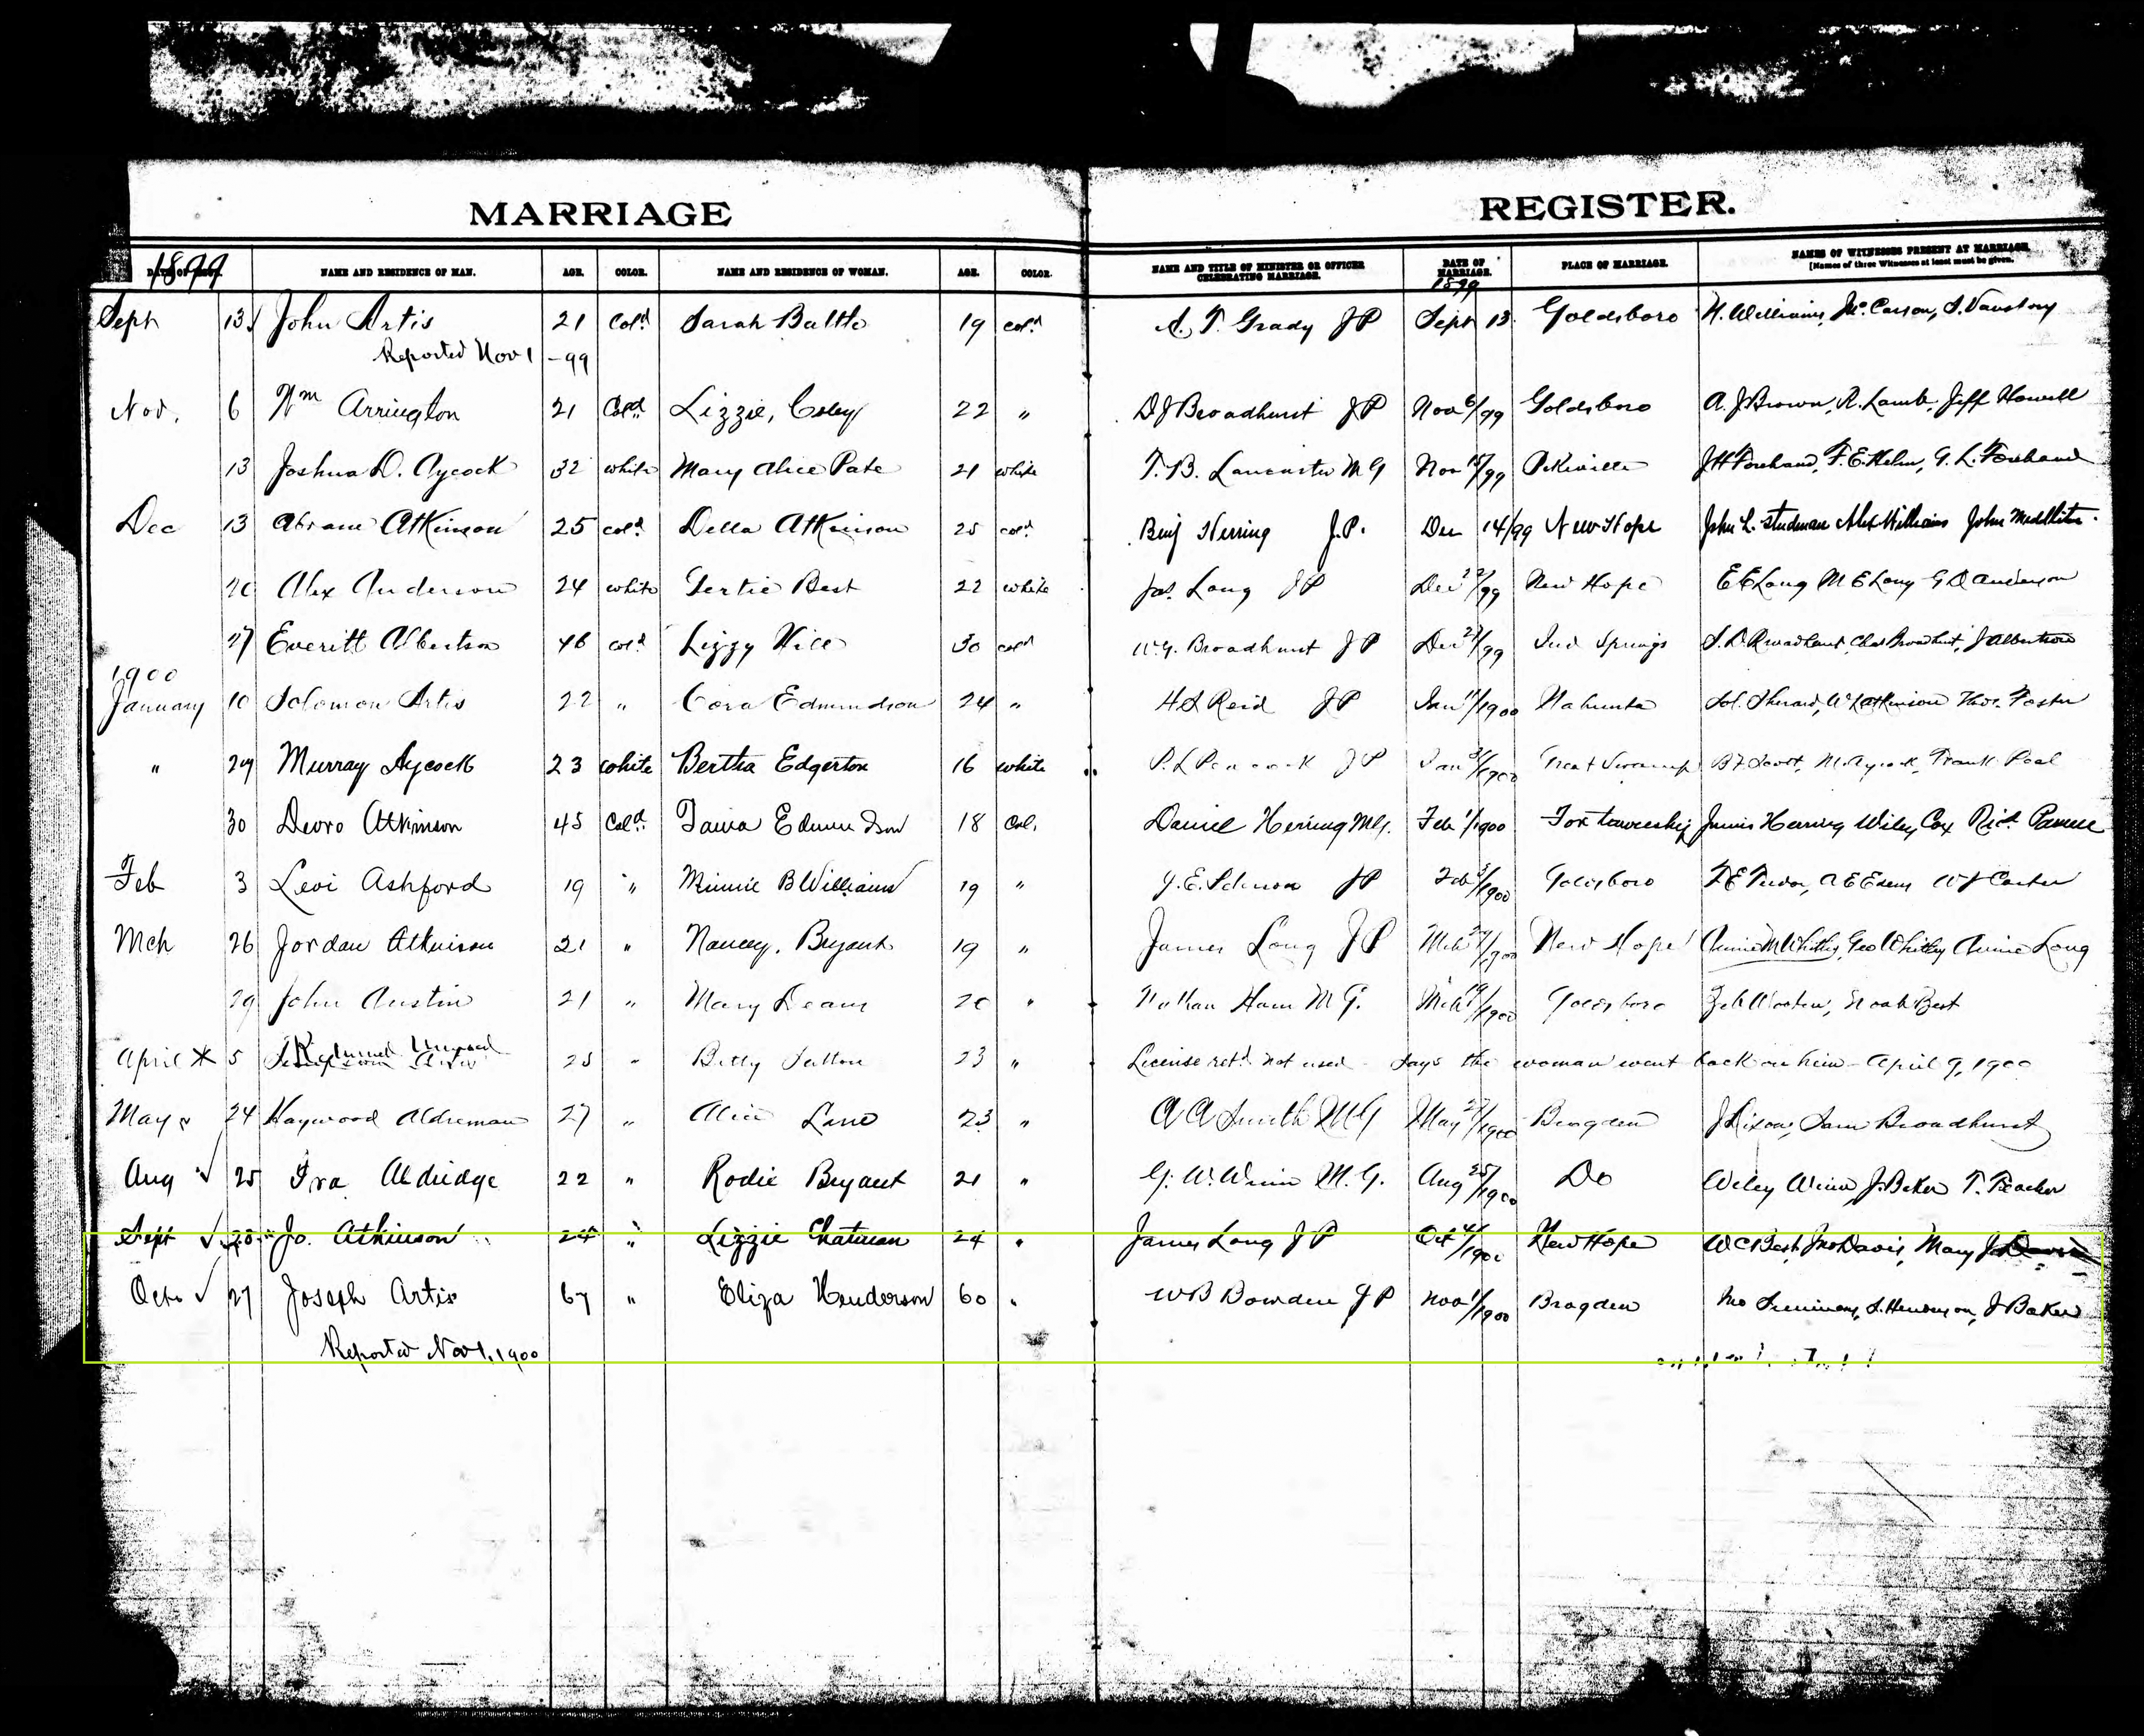 MARRIAGE REGISTER.
1899
NAME AND RESIDENCE OF MAN. AGE. COLOR. NAME AND RESIDENCE OF WOMAN. AGE. COLOR. NAME AND TITLE OF MINISTER OR OFFICER CELEBRATING MARRIAGE. DATE OF MARRIAGE. 1899 PLACE OF MARRIAGE. NAMES OF WITNESSES PRESENT AT MARRIAGE. [Names of three Witnesses at least must be given.
Sept 13 John Artis 21 Cold Sarah Battle 19 cold A. T. Grady JP Sept 13 Goldsboro H. Williams, Jno Carson, S. Vanstory
Reported Nov 1 -99
Nov. 6 Wm Arrington 21 Cold Lizzie, Coley 22 " D J Broadhurst JP Nov 6/99 Goldsboro A. J Brown, R. Lamb, Jeff Howell
13 Joshua D. Aycock 32 white Mary Alice Pate 21 white T. B. Lancaster M G Nov 15/99 Pikeville J H Forehand, F. E. Helm, G. L. Forehand
Dec 13 Abram Atkinson 25 cold Della Atkinson 25 cold Benj Herring J.P. Dec 14/99 New Hope John L. Studman Alex Williams John
20 Alex Anderson 24 white Gertie Best 22 white Jas. Long JP Dec 22/99 New Hope E E Long M E Long G D Anderson
27 Everitt Albertson 46 cold Lizzy Hill 30 cold W. G. Broadhurst JP Dec 27/99 Ind Springs S. D Broadhurst, Chas Broadhurst, J Albertson
1900
January 10 Solomon Artis 22 " Cora Edmundson 24 " H S Reid JP Jan 11/1900 Nahunta Sol. Sherard, W L Atkinson Thos. Foster
" 29 Murray Aycock 23 white Bertha Edgerton 16 white P. L Peacock JP Jan 31/1900 Great Swamp B F Scott, M. Aycock, Frank Peel
30 Devro Atkinson 45 Cold Edmundson 18 Col. Daniel Herring MG. Feb 1/1900 Fork township Junius Herring Wiley Cox Richd
Feb 3 Levi Ashford 19 " Minnie B Williams 19 " J. E. JP Feb 3/1900 Goldsboro A E W J Carter
Mch 26 Jordan Atkinson 21 " Nancy. Bryant 19 " James Long JP Mch 27/1900 New Hope Annie M Whitley, Geo Whitley Annie Long
29 John Austin 21 " Mary Deans 20 " Nathan Ham M G. Mch 29/1900 Goldsboro Zeb Wooten, Noah Best
April * 5 Returned Unused Artis 25 " Betty Sutton 23 " License retd not used - says the woman went back on him - April 9, 1900
May 24 Haywood Aldreman 27 " Alice Lane 23 " A A Smith M G May 27/1900 Brogden J Dixon, Sam Broadhurst
Aug ✓ 25 Ira Aldridge 22 " Rodie Bryant 21 " G. W. Winn M. G. Aug 25/1900 Do Wiley Winn J. Baker T. Teacher
Sept ✓ 28 Jo. Atkinson 24 " Lizzie Chatman 24 " James Long JP Oct 4/1900 New Hope W C Best, Jno Davis, Mary J
Octo ✓ 27 Joseph Artis 67 " Eliza Henderson 60 " W B Bowden JP Nov 1/1900 Brogden Jno Simmons, S. Henderson, J Baker
Reported Nov 1, 1900